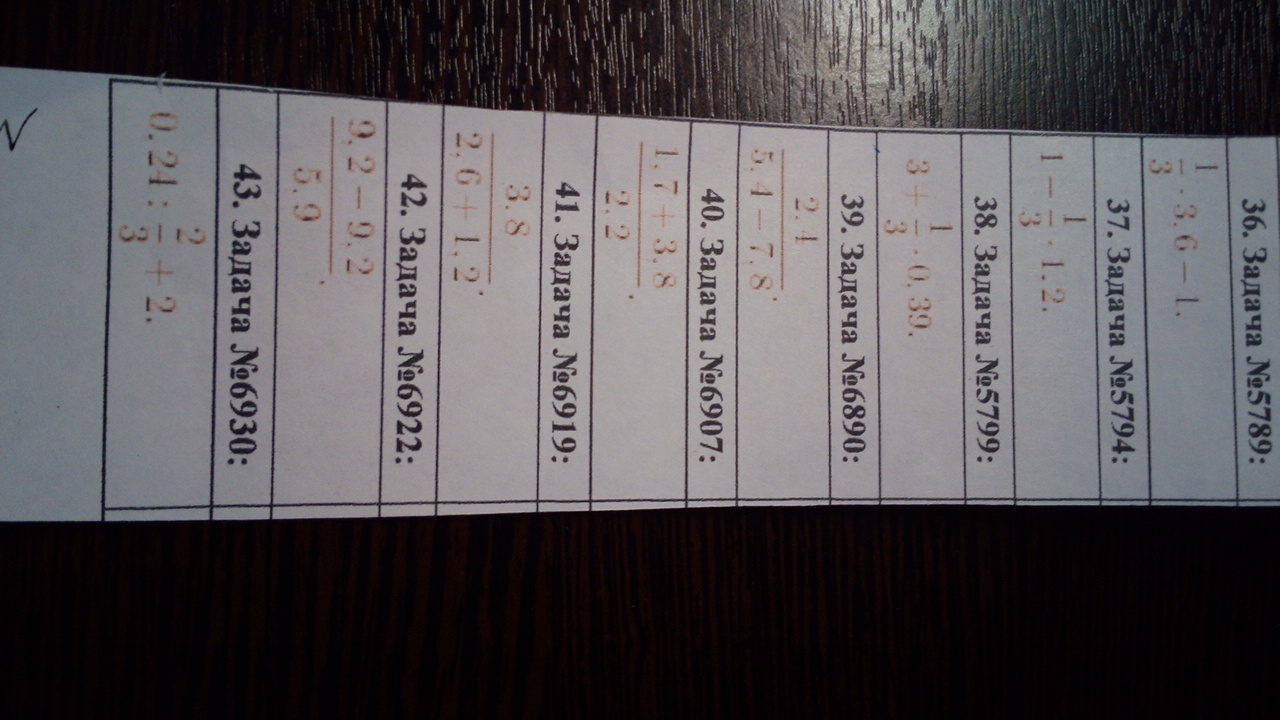 36. Задача №5789:
1/3 · 3,6 − 1.
37. Задача №5794:
1 − 1/3 · 1,2.
38. Задача №5799:
3 + 1/3 · 0,39.
39. Задача №6890:
2,4
5,4 − 7,8.
40. Задача №6907:
1,7 + 3,8
2,2.
41. Задача №6919:
3,8
2,6 + 1,2.
42. Задача №6922:
9,2 − 9,2
5,9.
43. Задача №6930:
0,24 : 2/3 + 2.